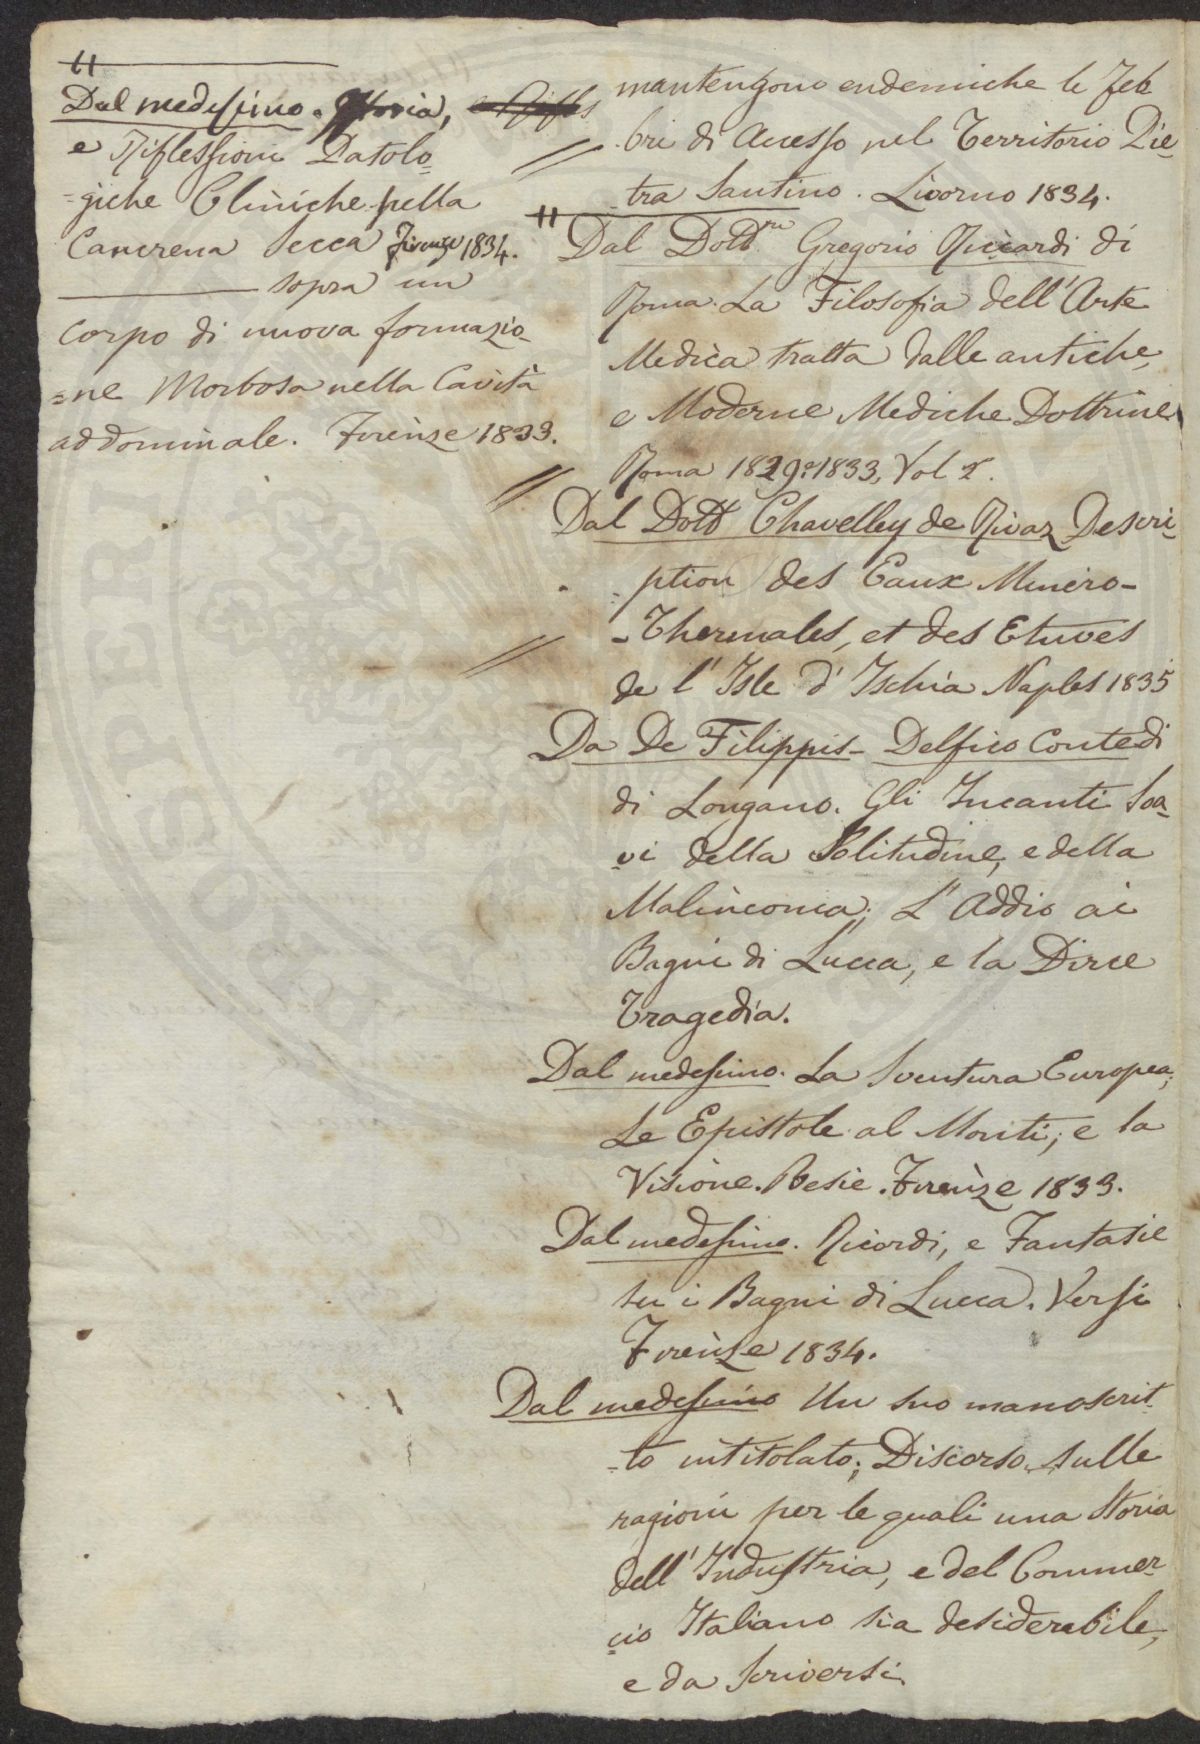 Dal medesimo. Storia,
e Riflessioni Patolo-
-giche Cliniche sulla
Cancrena Secca Firenze 1834.
sopra un
corpo di nuova formazio-
=ne Morbosa nella Cavità
addominale. Firenze 1833.
mantengono endemiche le Feb
bri di Accesso nel Territorio Pie-
tra Santino. Livorno 1834.
Dal Dott.re Gregorio Riccardi di
Roma. La Filosofia dell'Arte
Medica tratta dalle antiche,
e Moderne Mediche Dottrine
Roma 1829. 1833, Vol 2.
Dal Dott Chavelley de Rivaz Descri-
ption des Eaux Minero-
-Thermales, et des Etuves
de l'Isle d'Ischia Naples 1835
Da De Filippis- Delfico Conte di
di Longano. Gli Incanti Soa-
vi della Solitudine, e della
Malinconia; L'Addio ai
Bagni di Lucca, e la Dirce
Tragedia.
Dal medesimo. La Sventura Europea;
Le Epistole al Monti; e la
Visione. Poesie. Firenze 1833.
Dal medesimo. Ricordi, e Fantasie
su i Bagni di Lucca. Versi
Firenze 1834.
Dal medesimo Un suo manoscrit-
-to intitolato; Discorso sulle
ragioni per le quali una Storia
dell'Industria, e del Commer-
cio Italiano sia desiderabile,
e da scriversi